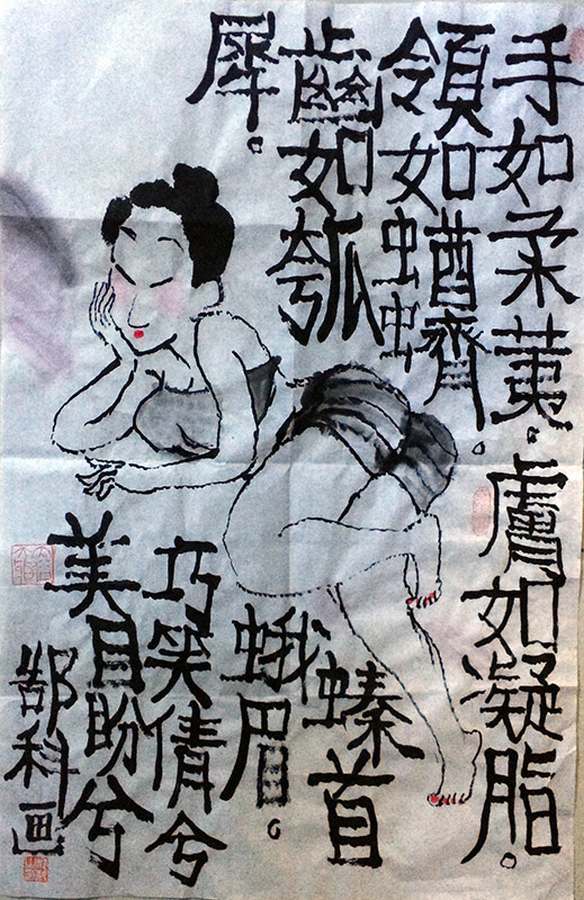 手如柔荑。膚如凝脂。
領如蝤蠐。
齒如瓠
犀。
螓首
蛾眉。
巧笑倩兮
美目盼兮
郜科画